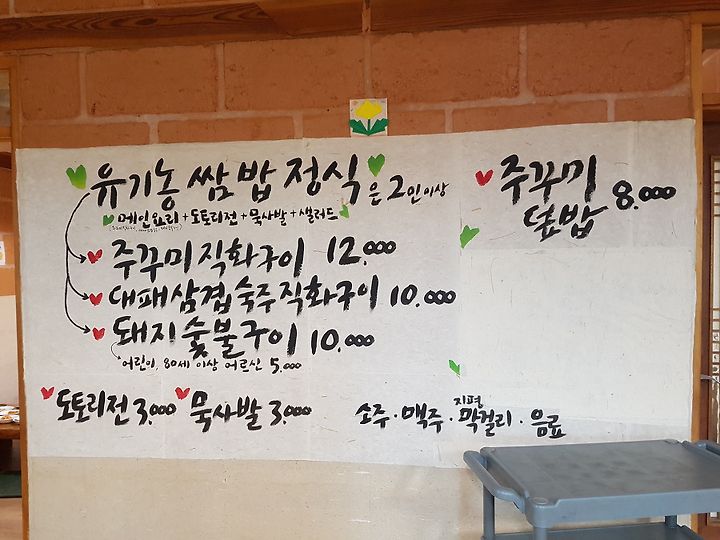 유기농 쌈밥 정식 은 2인이상
메인요리 + 도토리전 + 묵사발 + 샐러드
주꾸미 직화구이 12.000
대패삼겹숙주직화구이 10.000
돼지숯불구이 10.000
어린이, 80세 이상 어르신 5.000
주꾸미
덮밥 8.000
도토리전 3.000 묵사발 3.000
소주 · 맥주 · 지평 막걸리 · 음료